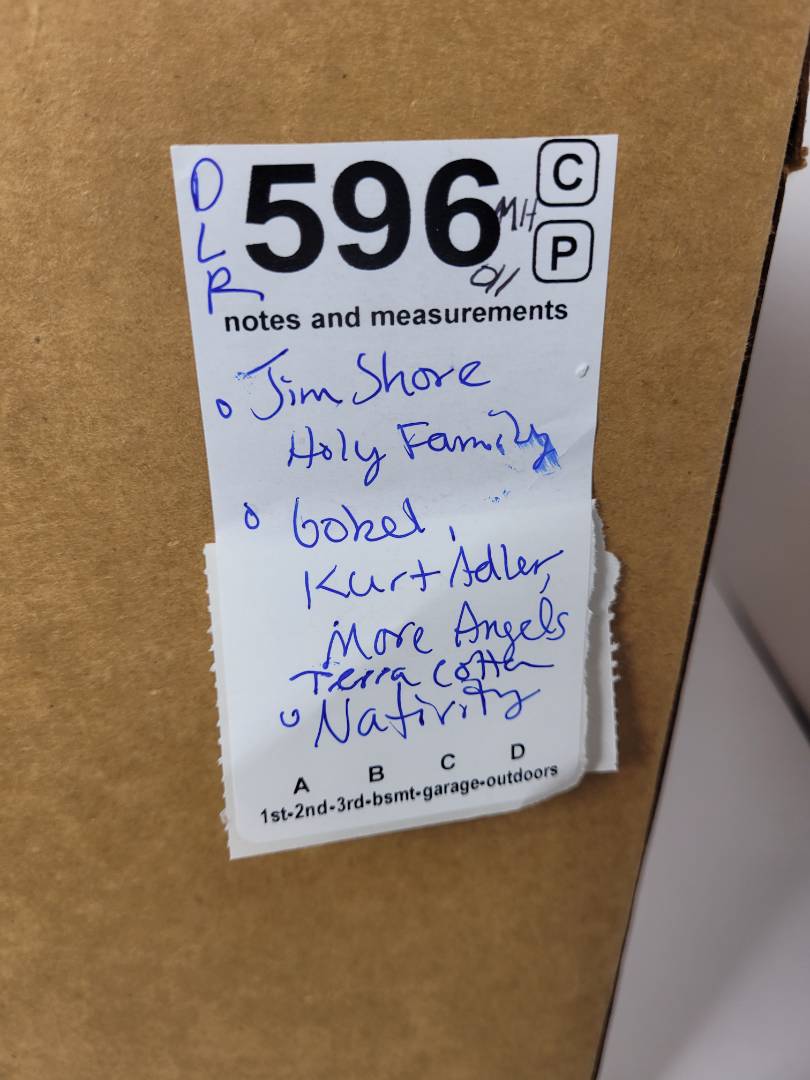 D
L
R
596
MH
C
P
notes and measurements
Jim Shore
Holy Family
Gokel,
Kurt Adler,
More Angels
Terra Cotta
Nativity
A B C D
1st-2nd-3rd-bsmt-garage-outdoors